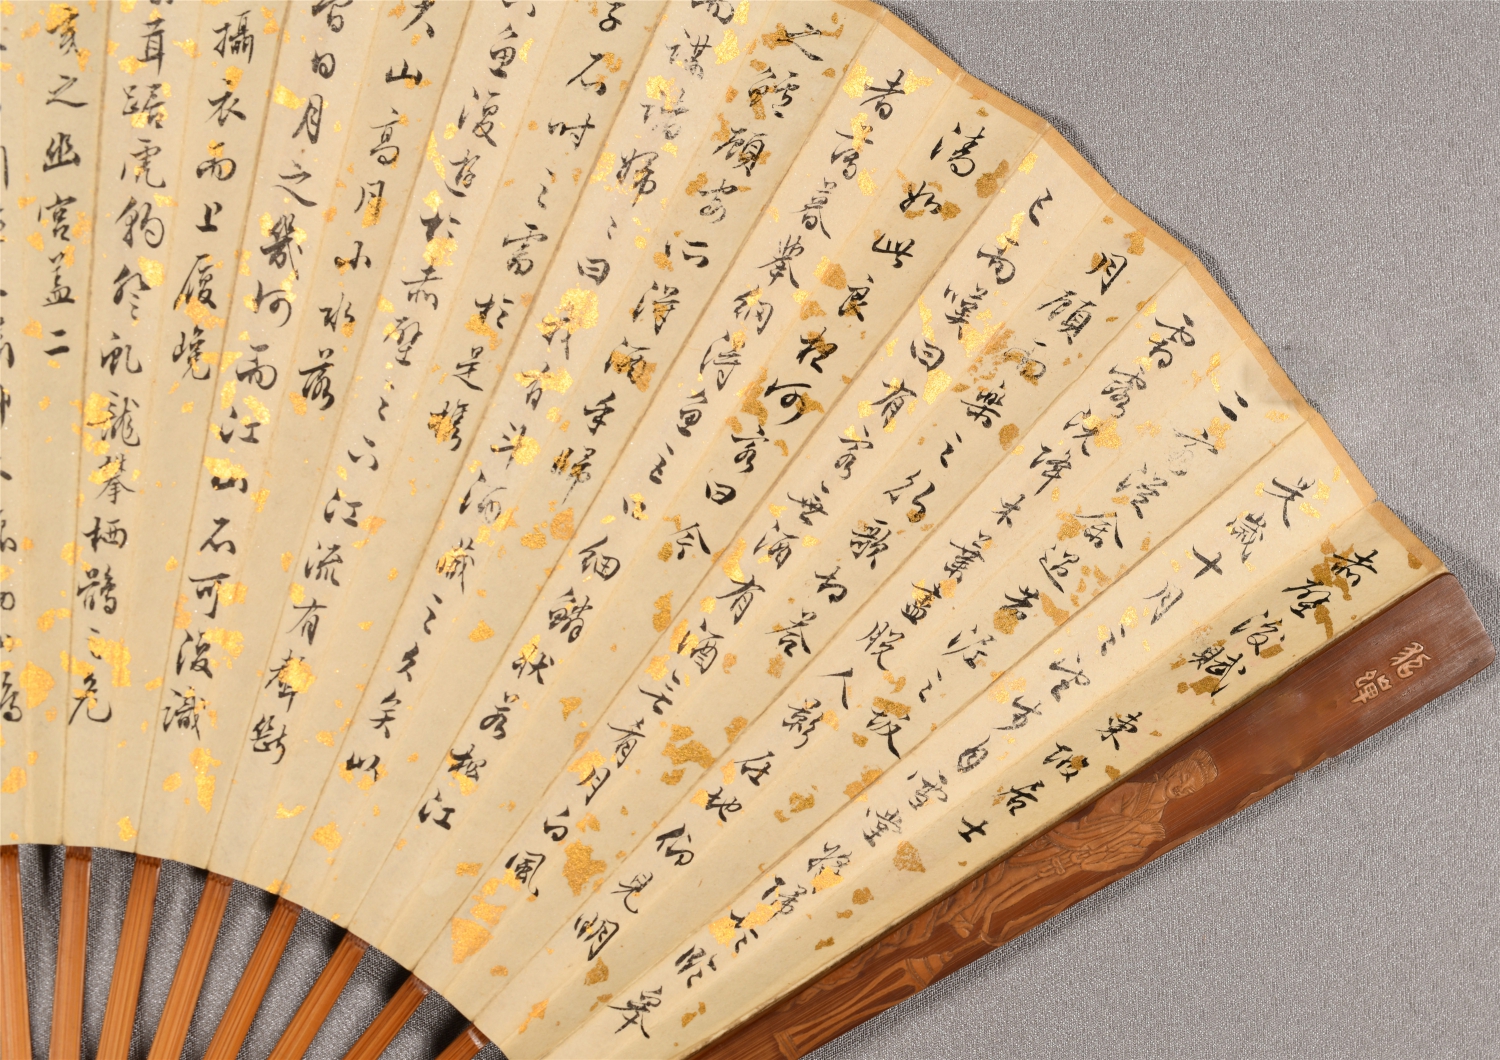 赤壁後賦 東坡居士
是歲十月之望步自雪堂將歸於臨皋
二客從余過黃泥之坂
霜露既降木葉盡脫人影在地仰見明
月顧而樂之行歌相答
已而嘆曰有客無酒有酒無肴月白風
清如此良夜何客曰今
者薄暮舉網得魚巨口細鱗狀若松江
之鱸顧安所得酒乎歸
而謀諸婦婦曰我有斗酒藏之久矣以
子不時之需於是攜
魚復遊於赤壁之下江流有聲斷
山高月小水落
曾日月之幾何而江山不可復識
攝衣而上履巉
茸踞虎豹登虬龍攀栖鶻之危
夷之幽宮蓋二